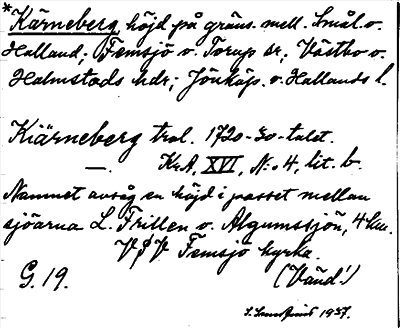 *Kärneberg, höjd på gräns. mell. Smål. o.
Halland; Femsjö o. Torup sr; Västbo o.
Halmstads hdr; Jönköp. o. Hallands l.
Kiärneberg trol. 1720-30-talet.
— . KrA, XVI, N:o 4, lit. b.
Namnet avsåg en höjd i passet mellan
sjöarna L. Frillen o. Algumssjön, 4 km.
V Femsjö kyrka.
G. 19. (Vänd!)
1937.